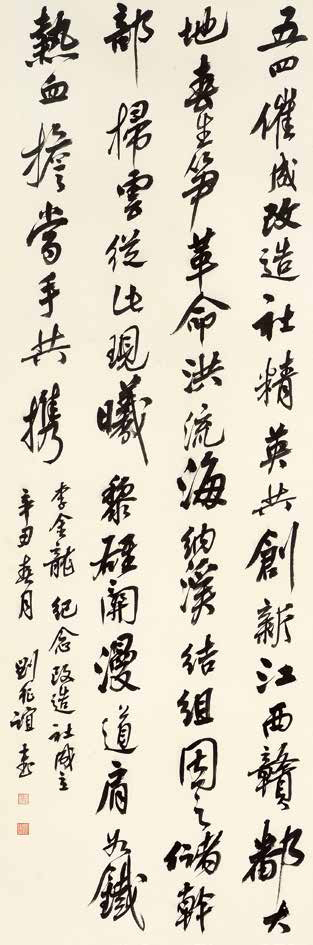 五四催成改造社精英共創新江西贛鄱大
地春生筍革命洪流海納溪結組因之儲幹
部掃雲從此現曦黎雄關漫道肩如鐵
熱血擔當手共携
李金龍 紀念改造社成立
辛丑春月 劉誼書